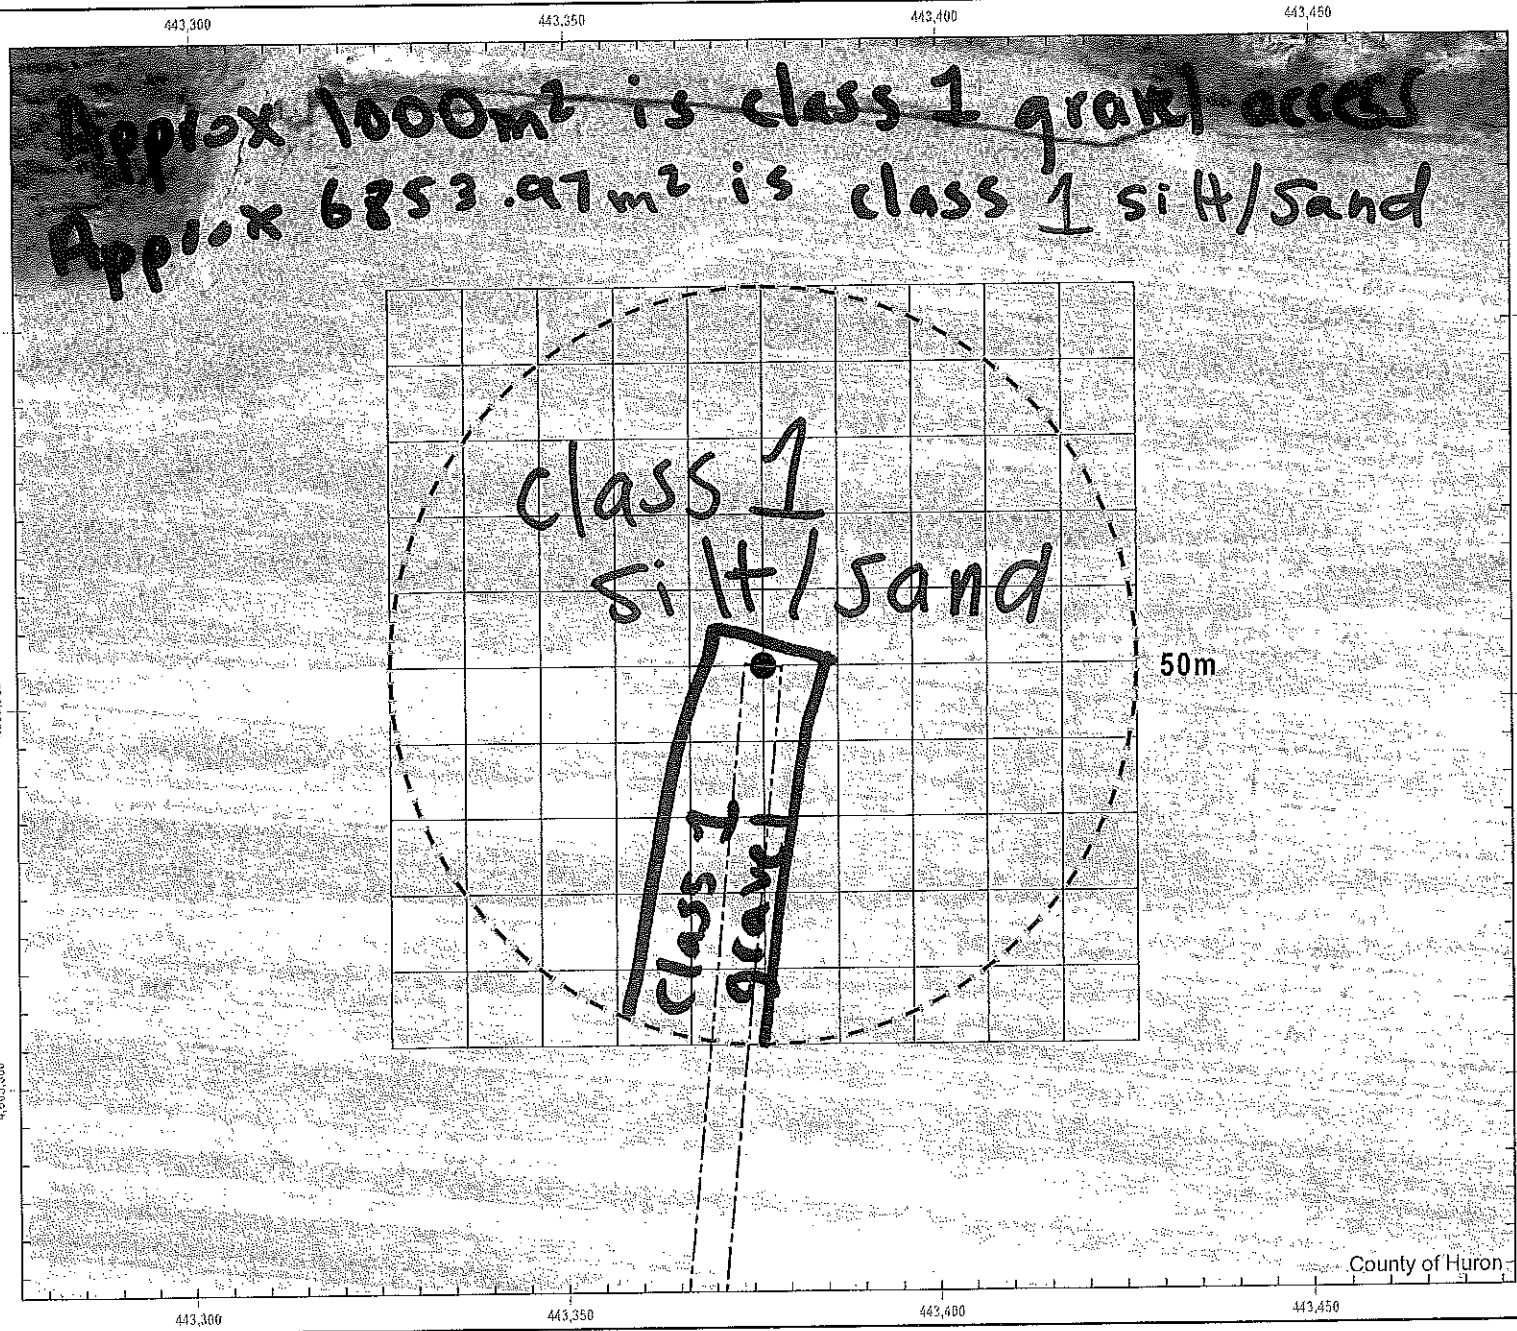 443,300 443,350 443,400 443,450
Approx 1000m² is class 1 gravel access
Approx 6853.97m² is class 1 silt/sand
class 1
silt/sand
50m
class 1
gravel
County of Huron
443,300 443,350 443,400 443,450